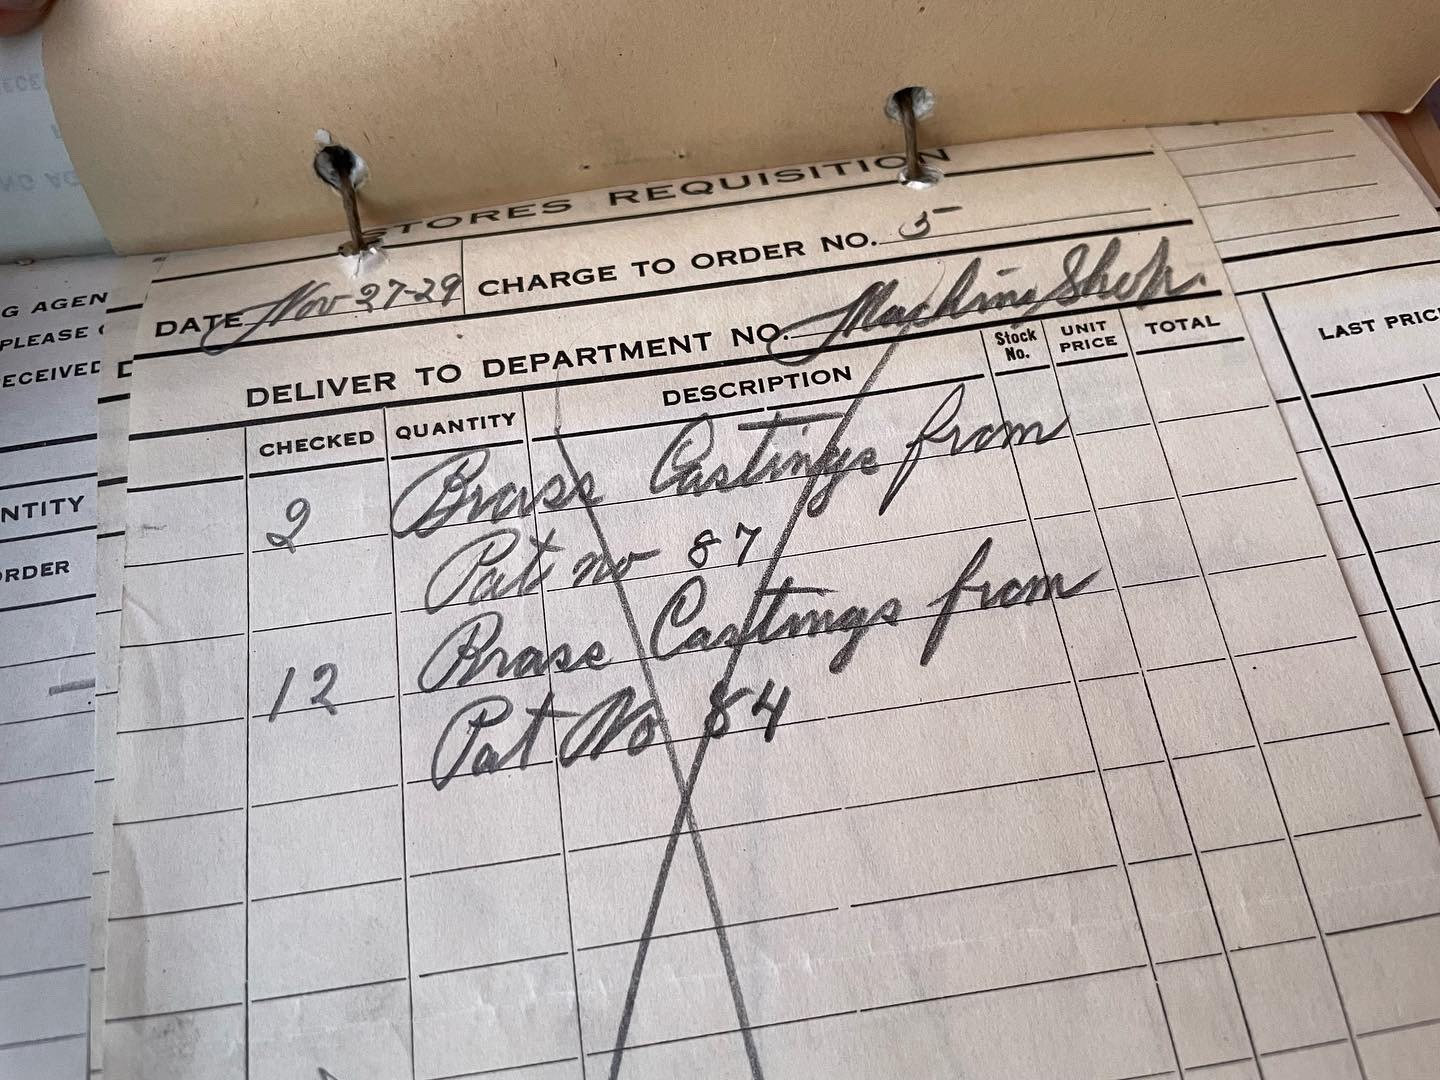 STORES REQUISITION
DATE Nov 27-29 CHARGE TO ORDER NO. 5
DELIVER TO DEPARTMENT NO. Machine Shop.
CHECKED QUANTITY DESCRIPTION Stock No. UNIT PRICE TOTAL
2 Brass Castings from
Pat no 87
12 Brass Castings from
Pat No 84
G AGEN
PLEASE
ECEIVED
NTITY
ORDER
LAST PRIC